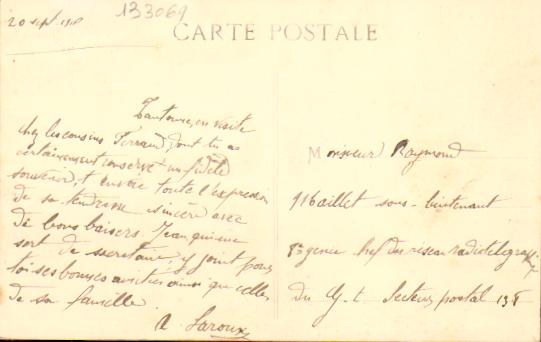 20 sept. 1918
133069
CARTE POSTALE
Tantoune, en visite
chez les cousins Ferrand, dont tu as
certainement conservé un fidèle
souvenir, t'envoie toute l'expression
de sa tendresse sincère avec
de bons baisers. Jean qui me
sert de secrétaire, y joint pour
toi ses bonnes amitiés ainsi que celles
de sa famille.
A. Laroux
Monsieur Raymond
Maillet sous-lieutenant
chef du réseau radiotélégraph
du G. L. Secteur postal 131